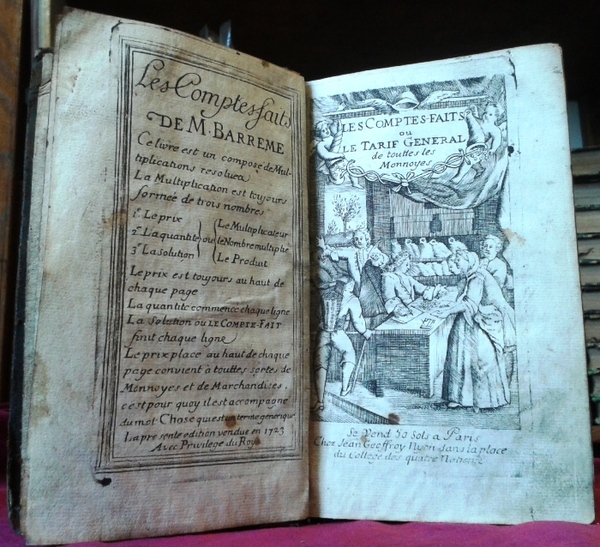 Les Comptes faits
DE M. BARREME
Ce livre est un composé de Mul-
tiplications resolues
La Multiplication est toujours
formée de trois nombres
1º Le prix
2º La quantité
3º La solution
ou
Le Multiplicateur
le Nombre multiplié
Le Produit
Le prix est toujours au haut de
chaque page
La quantité commence chaque ligne
La Solution ou LE COMPTE-FAIT
finit chaque ligne
Le prix place au haut de chaque
page convient à touttes sortes de
Monnoyes et de Marchandises,
c'est pour quoy il est accompagne
du mot Chose qui est un terme generique
La pre sente edition vendue en 1723
Avec Privilege du Roy
LES COMPTES-FAITS
ou
LE TARIF GENERAL
de touttes les
Monnoyes
Se Vend 50 Sols a Paris
Chez Jean Geoffroy Nyon dans la place
du College des quatre Nations